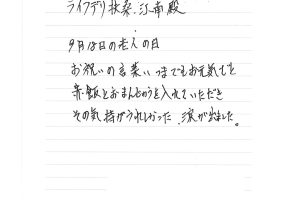 ライフデリ扶桑.江南殿
9月18日の老人の日
お祝いの言葉いつまでもお元気でと
赤飯とおまんじゅうを入れていただき
その気持がうれしかった.涙が出ました。